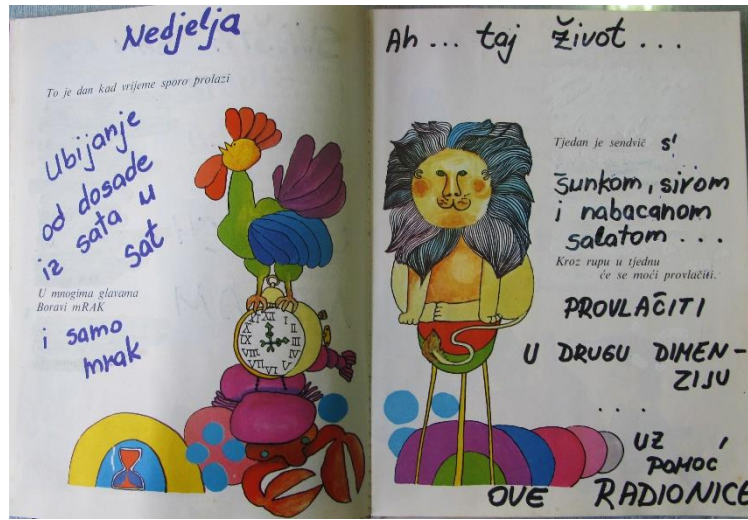 Nedjelja
To je dan kad vrijeme sporo prolazi
Ubijanje
od dosade
iz sata u
sat
U mnogima glavama
Boravi mRAK
i samo
mrak
Ah... taj život...
Tjedan je sendvič s'
šunkom, sirom
i nabacanom
salatom...
Kroz rupu u tjednu
će se moći provlačiti.
PROVLAČITI
U DRUGU DIMEN-
ZIJU
...
UZ
POMOĆ
OVE RADIONICE